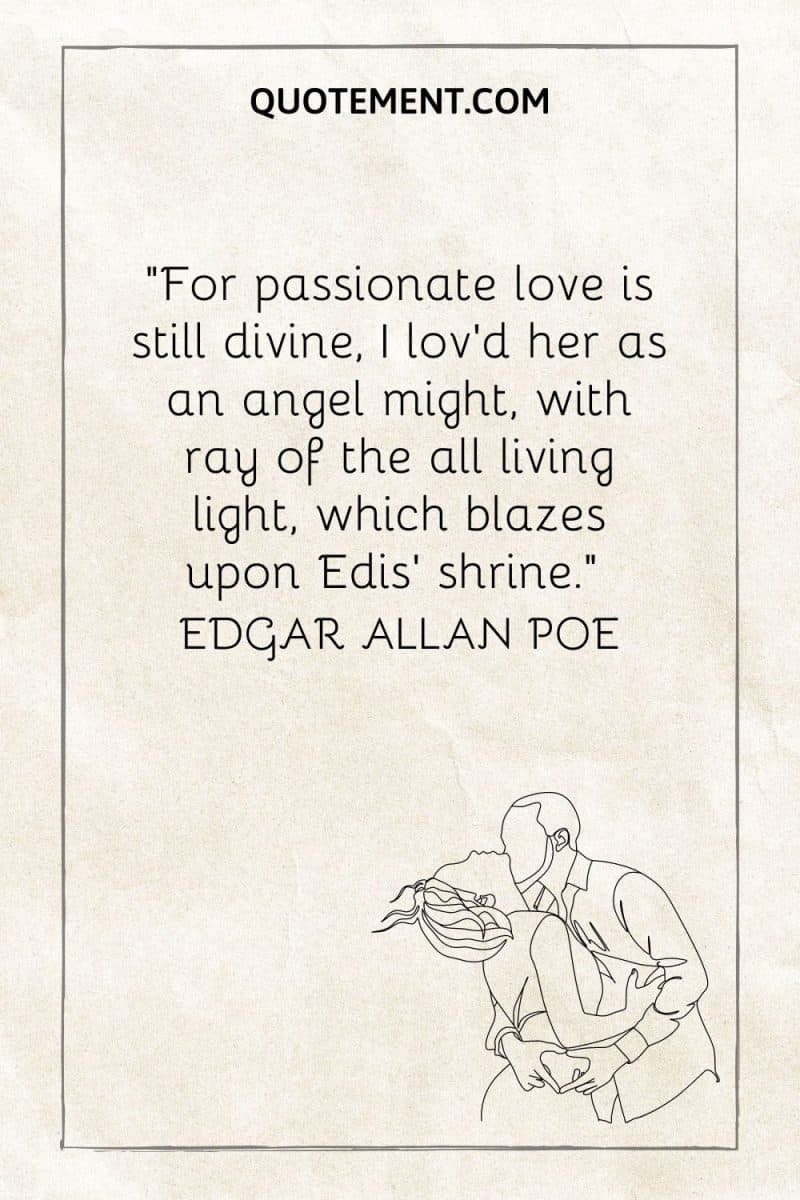 QUOTEMENT.COM
"For passionate love is
still divine, I lov'd her as
an angel might, with
ray of the all living
light, which blazes
upon Edis' shrine."
EDGAR ALLAN POE